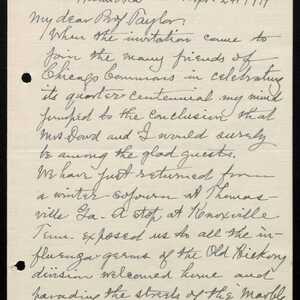 Apr. 24. 1919
My dear Prof Taylor.
When the invitation came to
join the many friends of
Chicago Commons in celebrating
its quarter centennial my mind
jumped to the conclusion that
Mrs Dowd and I would surely
be among the glad guests.
We have just returned from
a winter sojourn at Thomas-
ville Ga. A stop at Knoxville
Tenn. exposed us to all the in-
fluenza germs of the Old Hickory
division welcomed home and
parading the streets of this Marbl